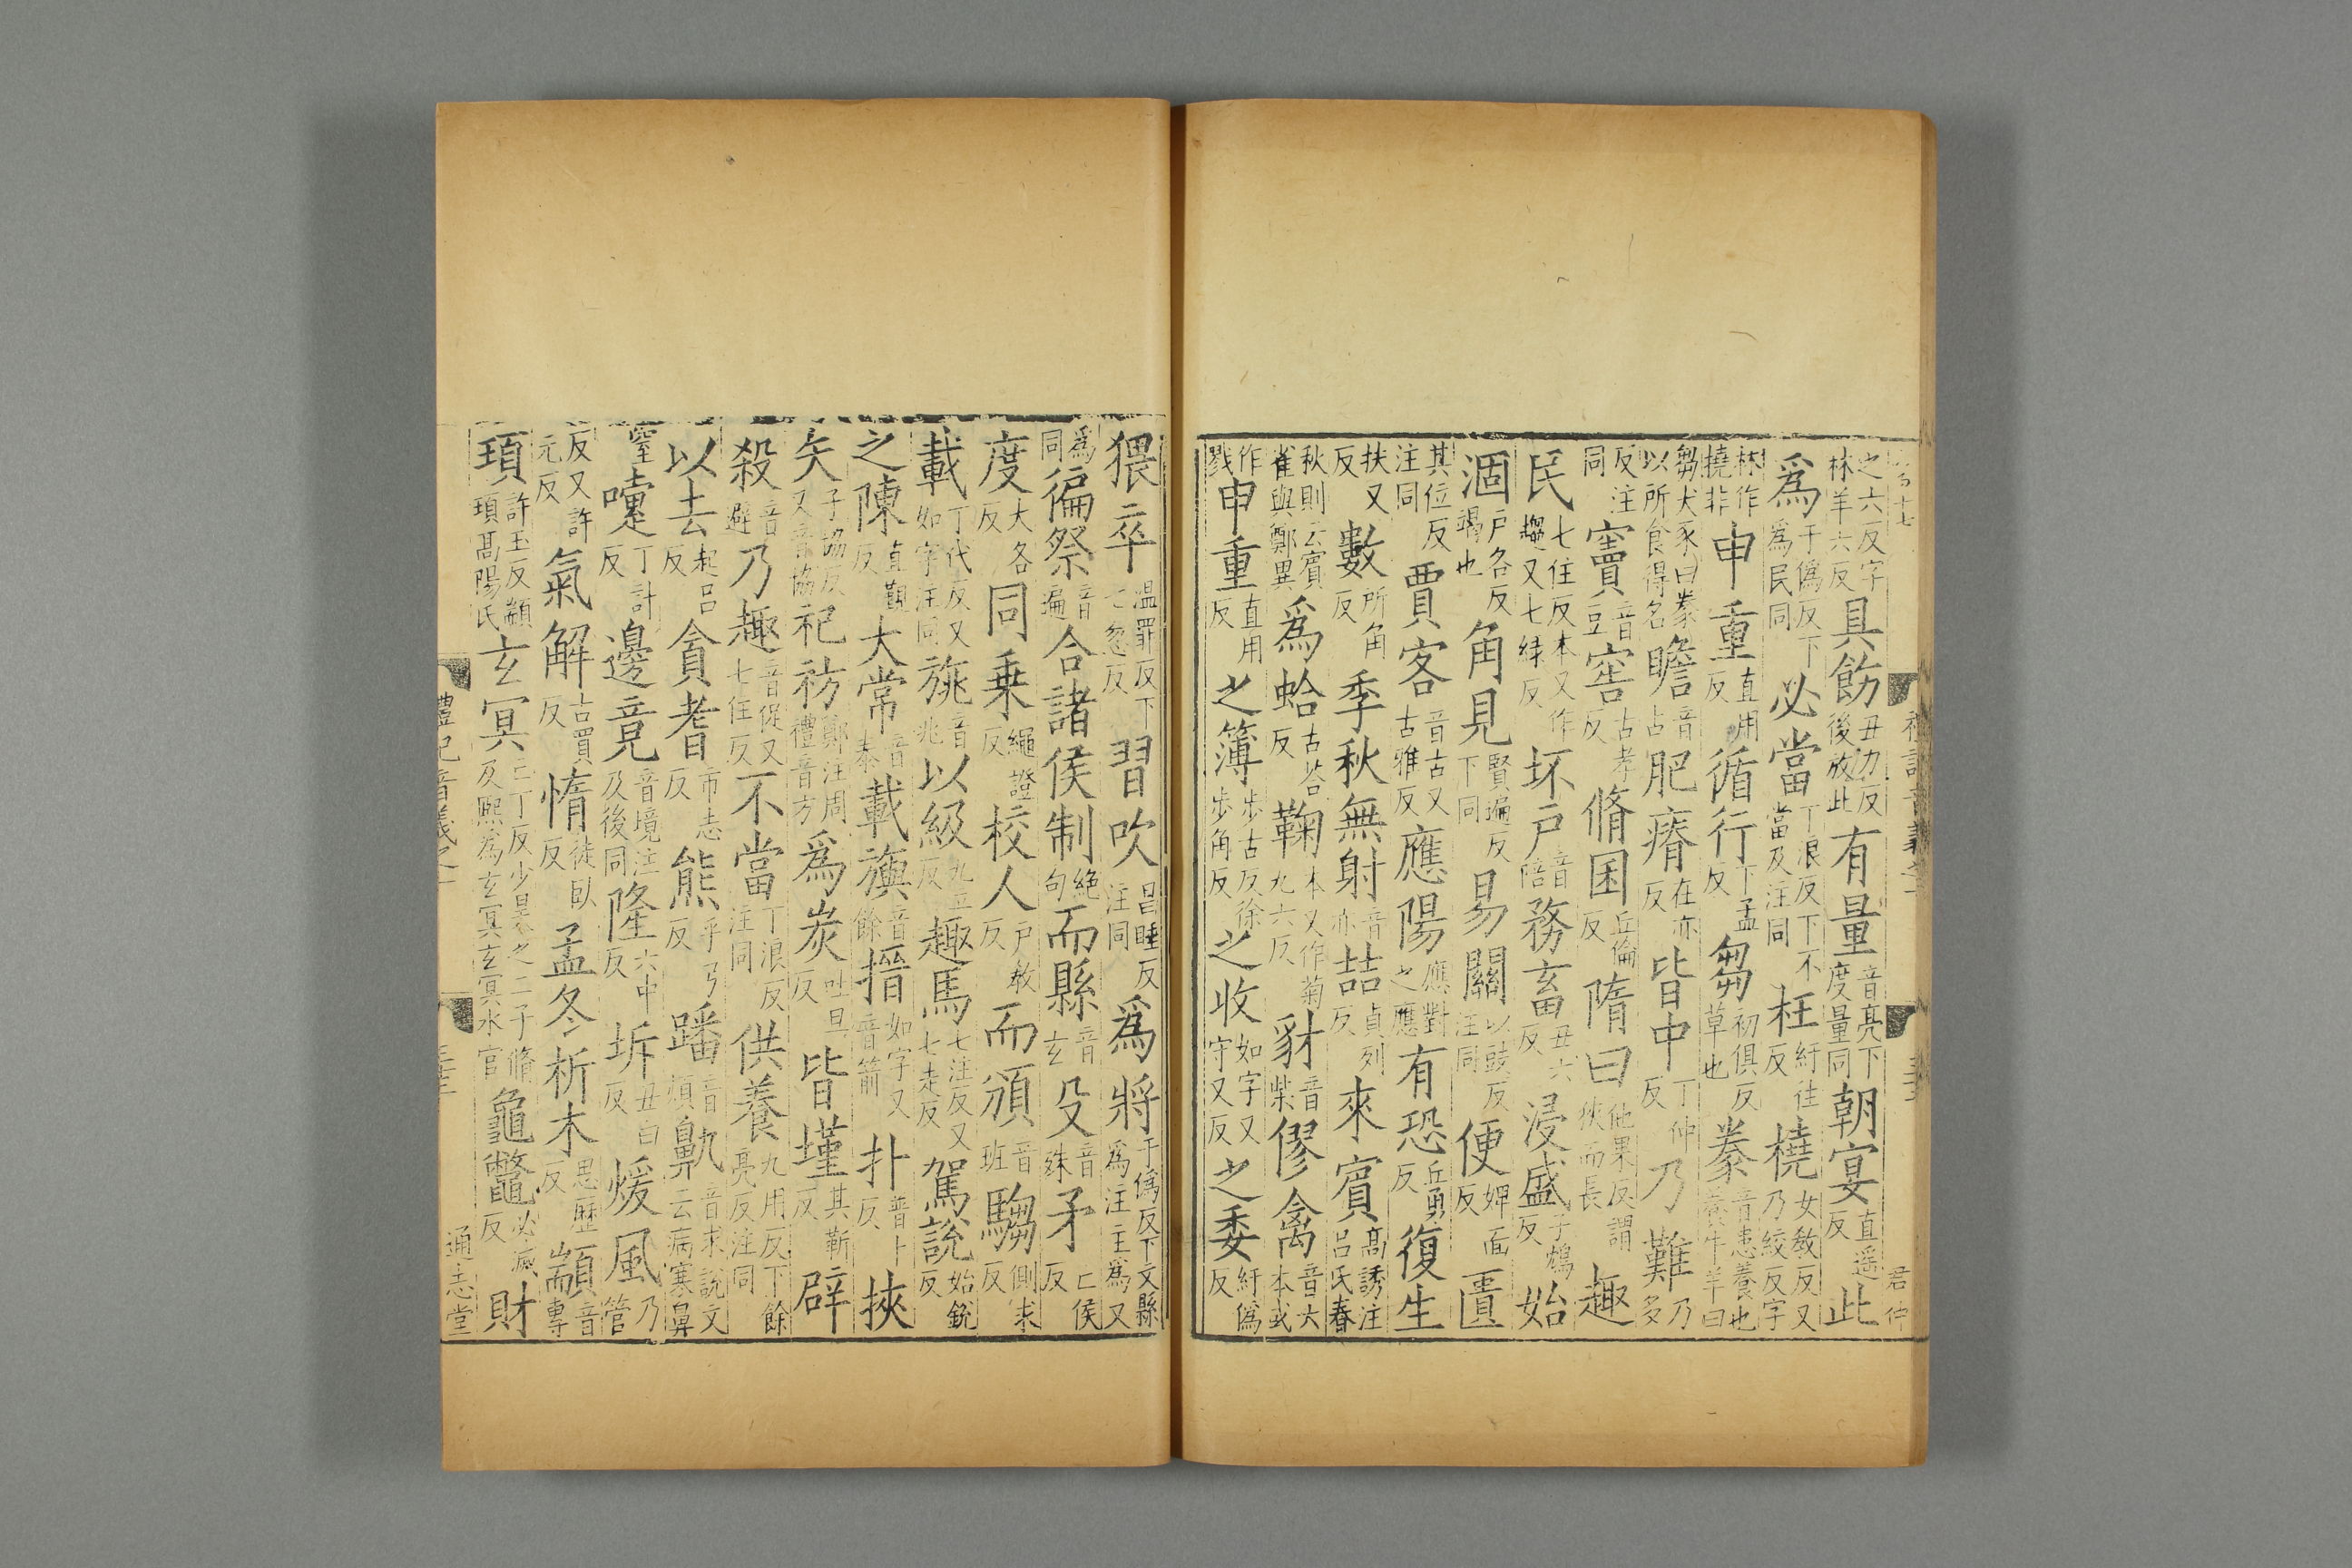 之六反字林羊六反具飭丑力反後放此有量音亮下度量同朝宴直遥反此
爲于僞反下爲民同必當丁浪反下不當及注同枉紆往反橈女敎反又乃絞反字
林作撓非申重直用反循行下孟反芻初俱反草也豢音患養也養牛羊曰
芻犬豕曰豢以所食得名瞻音占肥瘠在亦反皆中丁仲反乃難乃多
反注同竇音豆窖古孝反脩囷丘倫反隋曰他果反謂狹而長趣
民七住反本又作趨又七緑反坏戸音陪務畜丑六反浸盛子鴆反始
涸戸各反竭也角見賢遍反下同易關以豉反注同便婢面反匱
其位反注同賈客音古又古雅反應陽應對之應有恐丘勇反復生
扶又反數所角反季秋無射音亦喆貞列反來賓高誘注吕氏春
秋則云賓雀與鄭異爲蛤古荅反鞠本又作菊九六反豺音柴僇禽音六本或
作戮申重直用反之簿步古反徐步角反之收如字又守又反之委紆僞反
猥卒温罪反下七忽反習吹昌睡反注同爲將于僞反下文縣爲注主爲又
爲同徧祭音遍合諸侯制絶句而縣音玄殳音殊矛亡侯反
度大各反同乗繩證反校人戸敎反而頒音班騶側求反
載丁代反又如字注同旐音兆以級九立反趣馬七注反又七走反駕說始銳反
之陳直觀反大常音泰載旟音餘搢如字又音箭扑普卜反挾
矢子協反又音協祀祊鄭注周禮音方爲炭吐旦反皆墐其靳反辟
殺音避乃趣音促又七住反不當丁浪反注同供養九用反下餘亮反注同
以去起吕反貪耆市志反熊乎弓反蹯音煩鼽音求說文云病寒鼻
窒嚏丁計反邊竟音境注及後同隆六中反坼丑白反煖風乃管
反又許元反氣解古買反惰徒臥反孟冬析木思歷反顓音專
頊許玉反顓頊高陽氏玄冥亡丁反少皞之二子脩及熙爲玄冥玄冥水官龜鼈必滅反財
禮記音義之一
通志堂
君仲